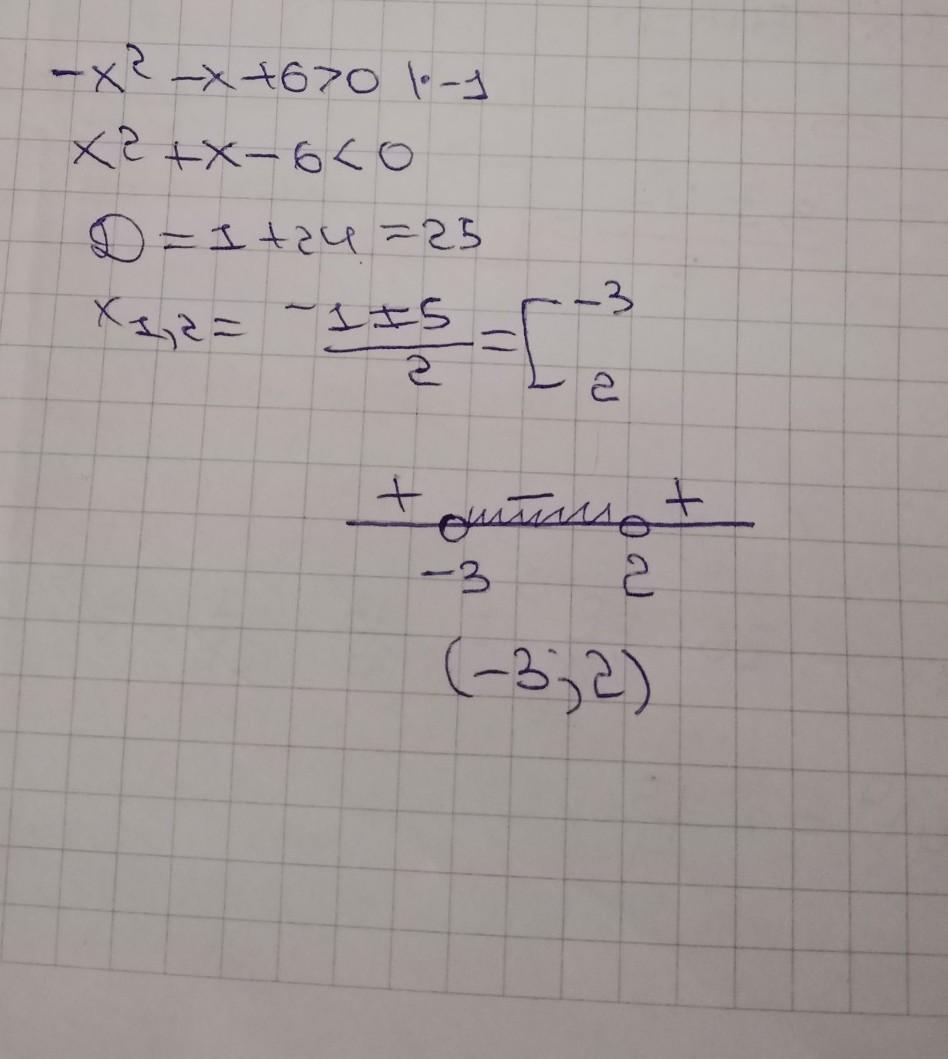 -x² -x+6>0 |·-1
x²+x-6<0
D=1+24=25
x₁,₂= (-1±5)/2 = [-3 2
+ - +
-3 2
(-3;2)